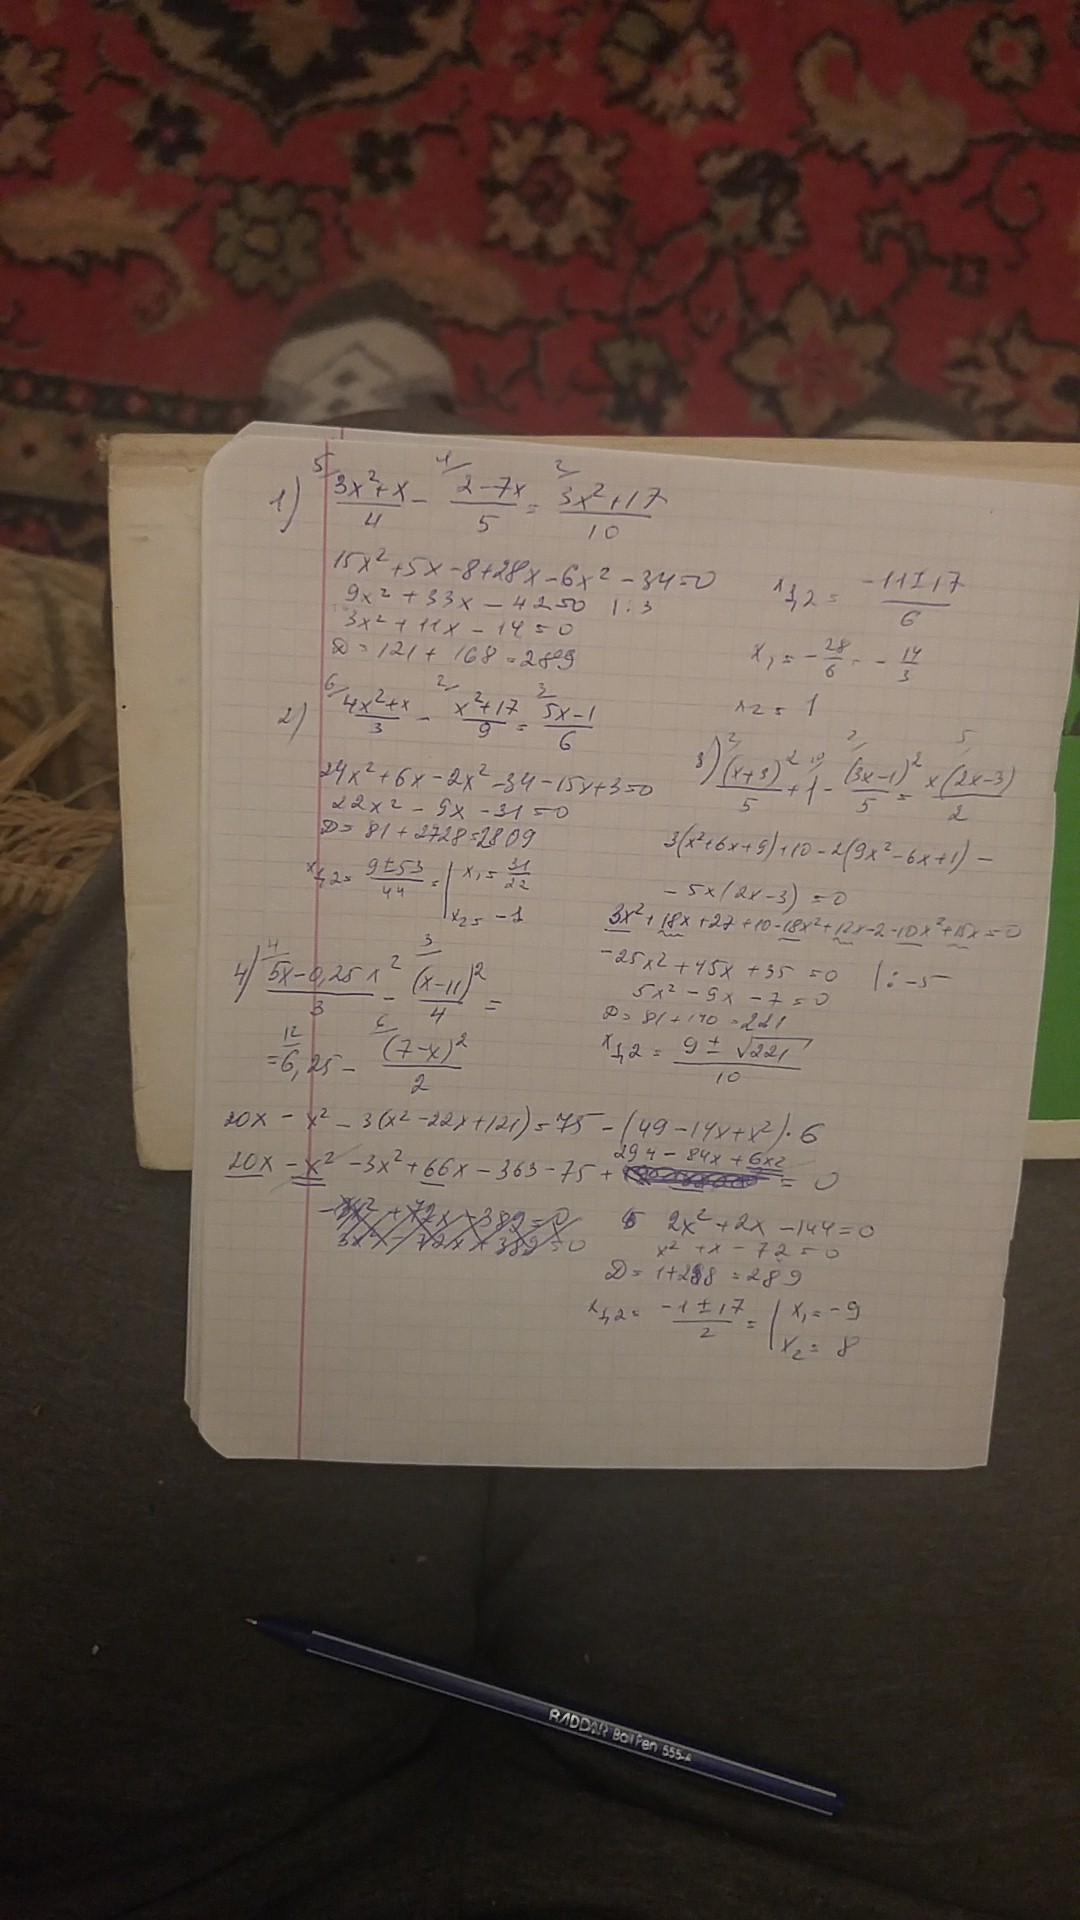 1) 5/ (3x²+x)/4 - 4/ (2-7x)/5 = 2/ (3x²+17)/10
15x²+5x-8+28x-6x²-34=0
9x²+33x-42=0 |:3
3x²+11x-14=0
D=121+168=289
x1,2 = (-11±17)/6
x₁ = -28/6 = -14/3
x₂ = 1
2) 6/ (4x²+x)/3 - 2/ (x²+17)/9 = 3/ (5x-1)/6
24x²+6x-2x²-34-15x+3=0
22x²-9x-31=0
D=81+2728=2809
x1,2 = (9±53)/44 = | x₁ = 31/22
x₂ = -1
3) 2/ (x+3)²/5 + 10/ 1 - 2/ (3x-1)²/5 = 5/ x(2x-3)/2
3(x²+6x+9)+10-2(9x²-6x+1)-
-5x(2x-3)=0
3x²+18x+27+10-18x²+12x-2-10x²+15x=0
-25x²+45x+35=0 |:-5
5x²-9x-7=0
D=81+140=221
x1,2 = (9±√221)/10
4) 4/ (5x-0,25x²)/3 - 3/ (x-11)²/4 =
= 12/ 6,25 - 6/ (7-x)²/2
20x-x²-3(x²-22x+121)=75-(49-14x+x²)·6
294-84x+6x²
20x-x²-3x²+66x-363-75+ =0
2x²+2x-144=0
x²+x-72=0
D=1+288=289
x1,2 = (-1±17)/2 = | x₁ = -9
x₂ = 8
RADDAR Ball Pen 555-A